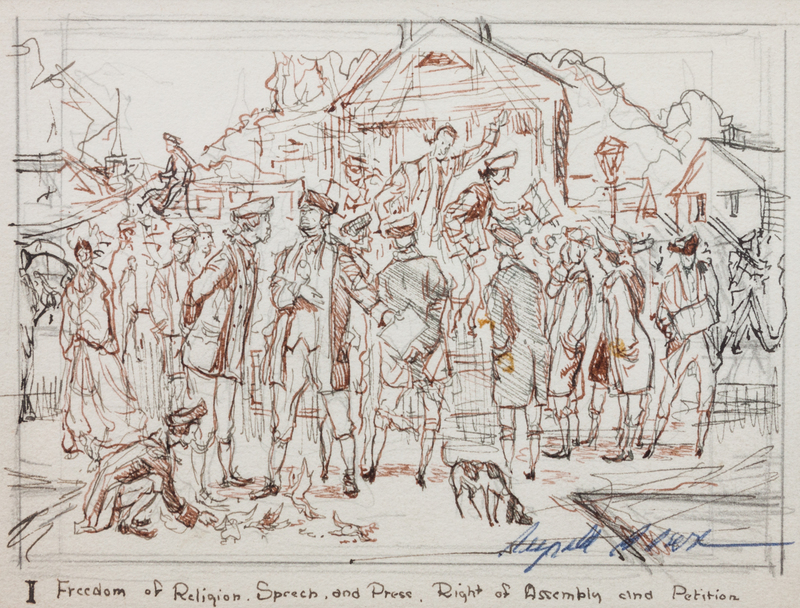 I Freedom of Religion. Speech, and Press, Right of Assembly and Petition